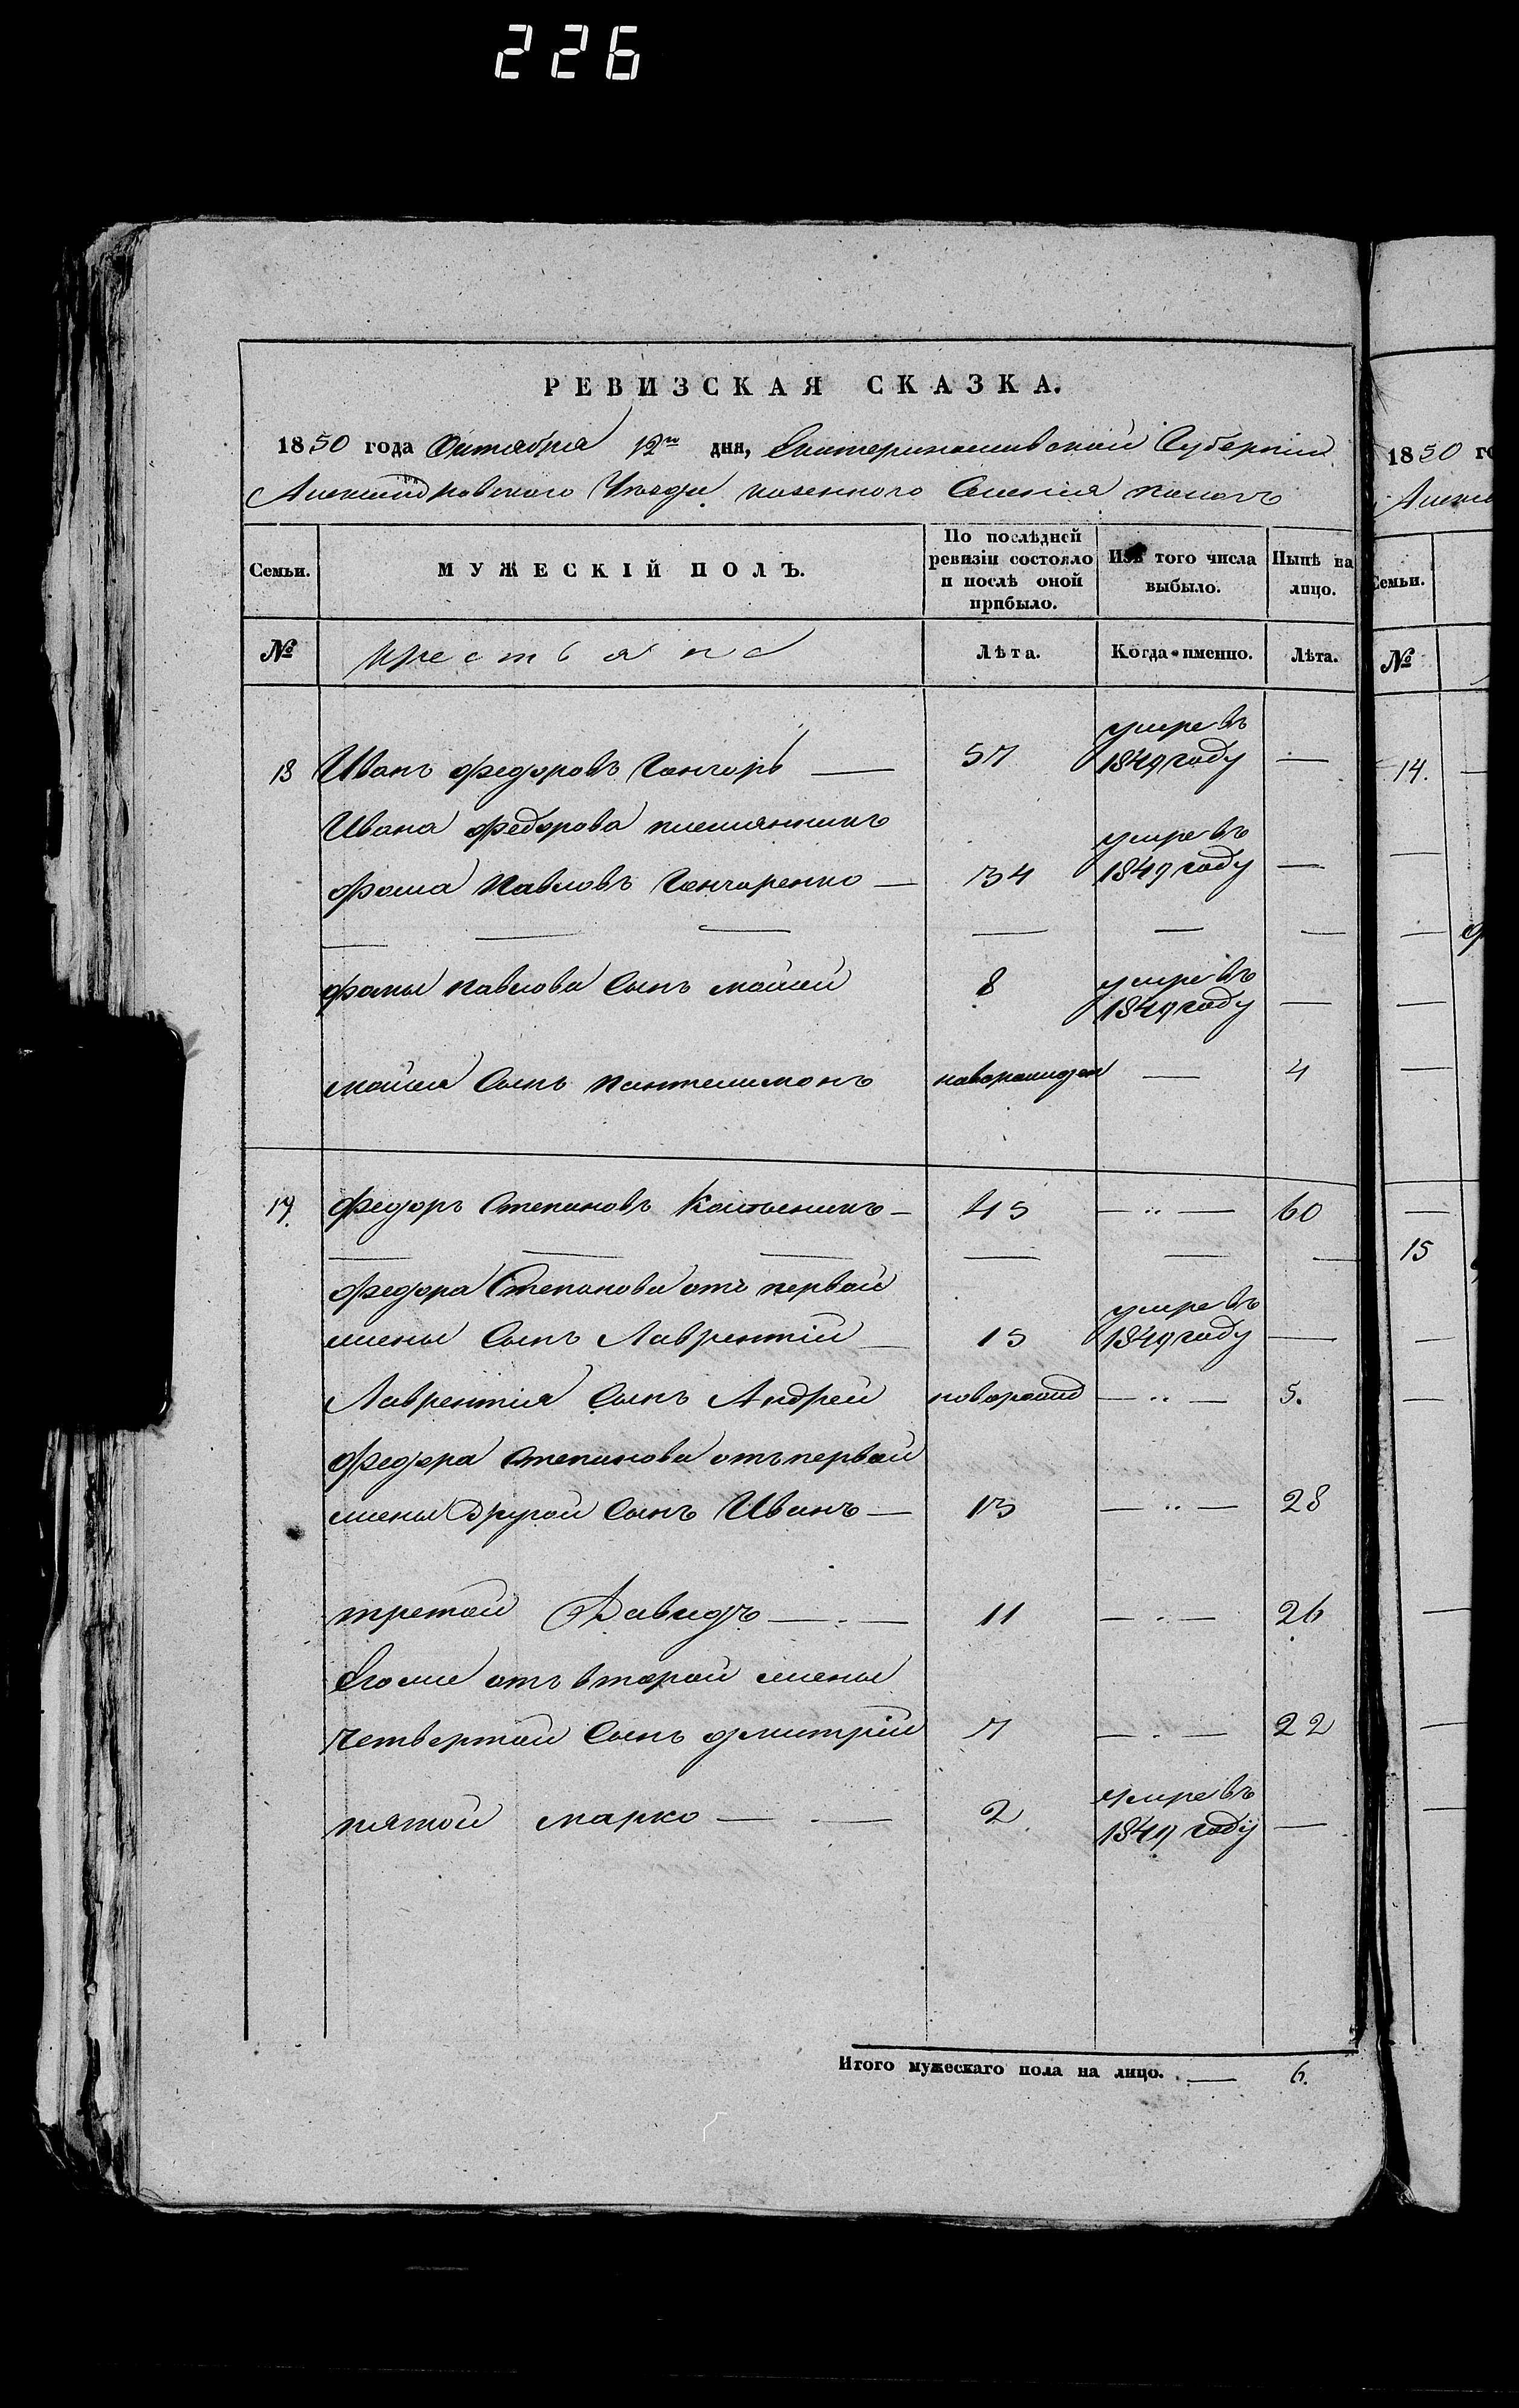 226
РЕВИЗСКАЯ СКАЗКА.
1850 года Октября 12го дня, Екатеринославской Губернiи
Александровского Уѣзда казенного Селенiя
Семьи. МУЖЕСКIЙ ПОЛЪ. По послѣдней ревизiи состояло и послѣ оной прибыло. Изъ того числа выбыло. Нынѣ на лицо.
№ Крестьяне Лѣта. Когда именно. Лѣта.
13 Иванъ Федоровъ Гончаръ — 57 умре въ 1849 году —
Ивана Федорова племянникъ
Фома Павловъ Гончаренко — 34 умре въ 1849 году —
— — — — — —
Фомы Павлова Сынъ Мойсей 8 умре въ 1849 году —
Мойсея Сынъ Пантелимонъ новорожден — 4
Федоръ Степановъ — 45 — „ — 60
— — — — — —
Федора Степанова отъ первой
жены Сынъ Лаврентiй — 15 умре въ 1849 году —
Лаврентiя Сынъ Андрей новорожд — „ — 5.
Федора Степанова отъ первой
жены Другой Сынъ Иванъ — 13 — „ — 28
третой Давидъ — 11 — „ — 26
Егоже отъ второй жены
четвертой Сынъ Дмитрiй 7 — 22
пятой Марко — — 2 умре въ 1849 году —
Итого мужескаго пола на лицо. — 6.
1850 го
Семьи.
№
14.
15